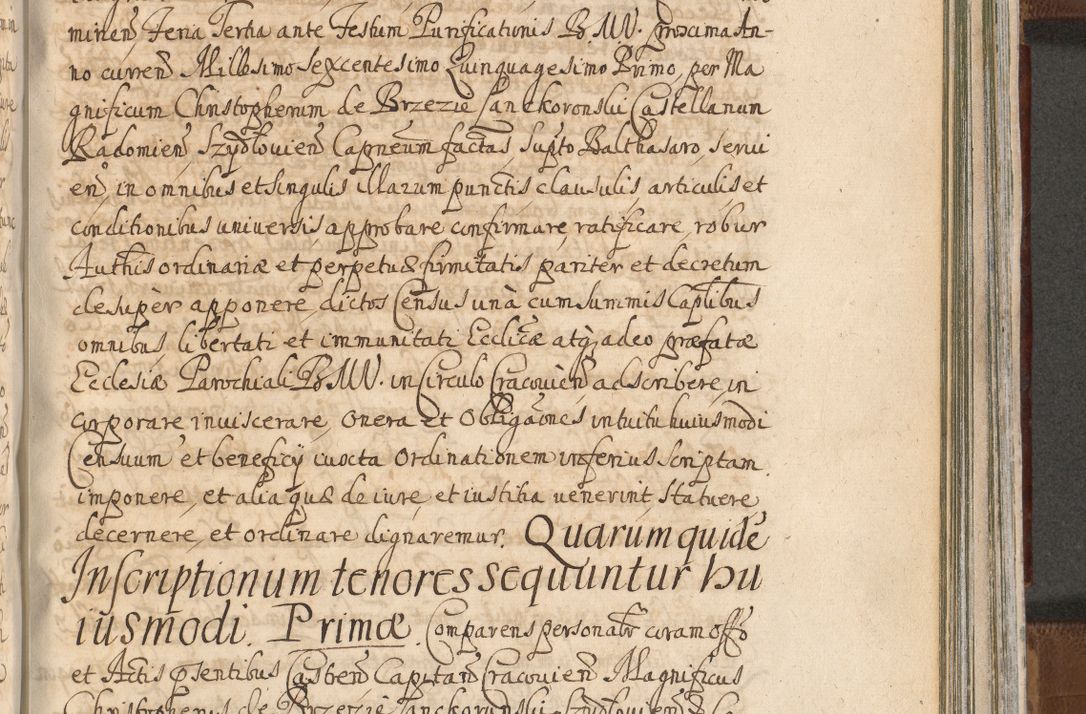 minen̄ Feria Tertia ante Festum Purificationis B. MV. proxima An-
no curren̄ Millesimo Sexcentesimo Quinquagesimo Primo, per Ma
gnificum Christopherum de Brzezie Lanckoronski Castellanum
Radomien̄ Szydłovien̄ Capneum factas Supto Balthasaro, servi
en̄, in omnibus et singulis illarum punctis clausulis articulis et
conditionibus universis approbare confirmare, ratificare, robur
Authtis ordinariæ et perpetuæ firmitatis pariter et decretum
desupèr apponere, dictos Census unà cum summis Captlibus
omnibus, libertati et immunitati Ecclicæ atq; adeo præfatæ
Ecclesiæ Parochiali B. MV. in Circulo Cracovien̄ adscribere, in
corporare inviscerare, onera et Obligaōnes intuitu huiusmodi
Censuum et beneficy iuxta Ordinationem inferius scriptam
imponere, et alia quæ de iure, et iustitia venerint, statuere
decernere, et ordinare dignaremur. Quarum quidē
Inscriptionum tenores sequuntur hu
iusmōdi. Primæ. Comparens personalr coram offō
et Actis psentibus Castren̄ Capitan̄ Cracovien̄ Magnificus
Christopherus de Brzezie Lanckorunski Szydłovien̄